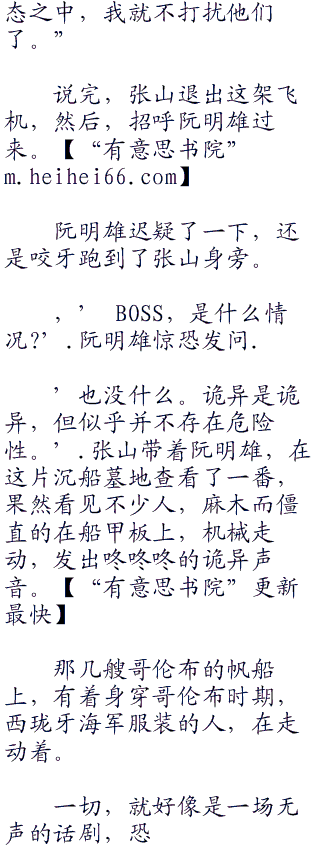 态之中，我就不打扰他们
了。”
说完，张山退出这架飞
机，然后，招呼阮明雄过
来。【“有意思书院”
m.heihei66.com】
阮明雄迟疑了一下，还
是咬牙跑到了张山身旁。
，’ BOSS，是什么情
况?’.阮明雄惊恐发问.
’也没什么。诡异是诡
异，但似乎并不存在危险
性。’.张山带着阮明雄，在
这片沉船墓地查看了一番，
果然看见不少人，麻木而僵
直的在船甲板上，机械走
动，发出咚咚咚的诡异声
音。【“有意思书院”更新
最快】
那几艘哥伦布的帆船
上，有着身穿哥伦布时期，
西珑牙海军服装的人，在走
动着。
一切，就好像是一场无
声的话剧，恐